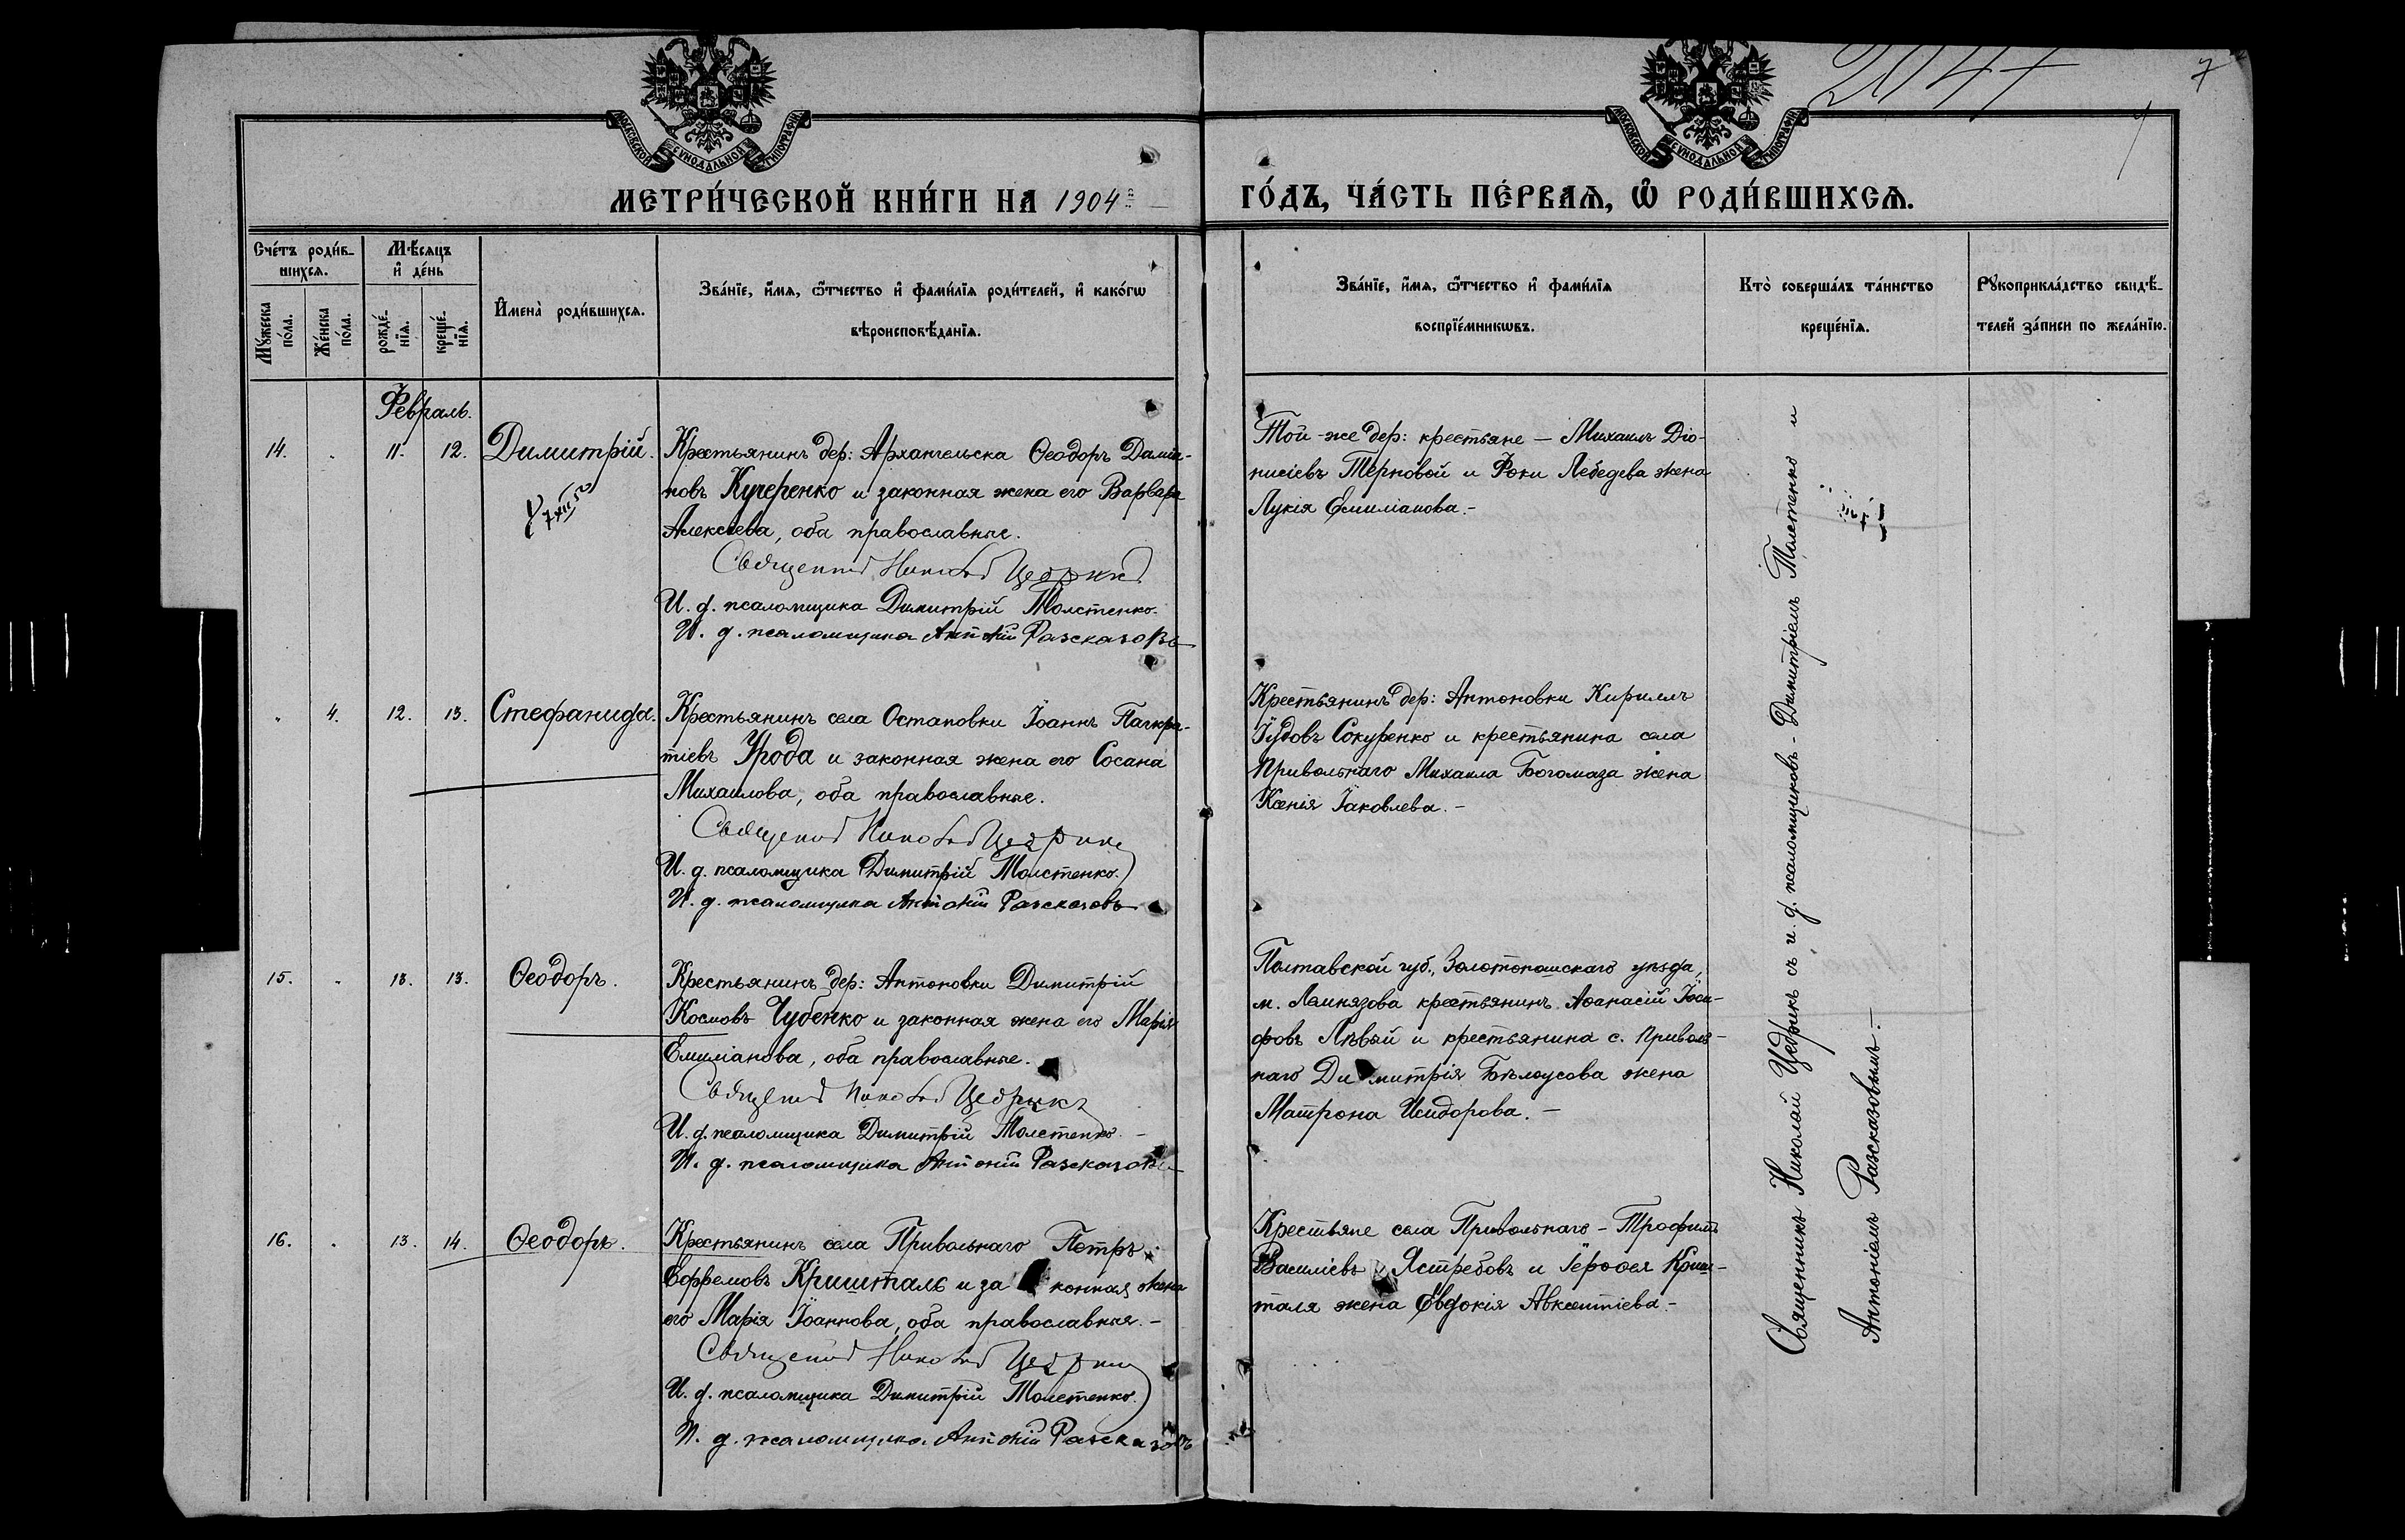 2047
7
МОСКОВСКОЙ СѴНОДАЛЬНОЙ ТИПОГРАФІИ
МОСКОВСКОЙ СѴНОДАЛЬНОЙ ТИПОГРАФІИ
МЕТРИ́ЧЕСКОЙ КНИ́ГИ НА 1904й ГО́ДЪ, ЧА́СТЬ ПЕ́РВАѦ, Ѿ РОДИ́ВШИХСѦ.
Сче́тъ роди́в-
шихсѧ.
Мѣ́сяцъ
и҆ де́нь
Мꙋ́жеска
по́ла.
Же́нска
по́ла.
рожде́-
нїѧ.
креще́-
нїѧ.
И҆мена̀ роди́вшихсѧ.
Зва́нїе, и҆́мѧ, ѻ҆́тчество и҆ фами́лїѧ роди́телей, и҆ како́гѡ
вѣроисповѣ́данїѧ.
Зва́нїе, и҆́мѧ, ѻ҆́тчество и҆ фами́лїѧ
воспрїе́мникѡвъ.
Кто̀ соверша́лъ та́инство
креще́нїѧ.
Рꙋкоприкла́дство свидѣ́-
телей за́писи по жела́нїю.
Февраль.
14. . 11. 12. Димитрій.
Крестьянинъ дер: Архангельска Ѳеодоръ Даміа-
новъ Кучеренко и законная жена его Варвара
Алексѣева, оба православные.
Священникъ Николай Цедрикъ
И. д. псаломщика Димитрій Толстенко.
И. д. псаломщика Антоній Разсказовъ
Той-же дер: крестьяне — Михаилъ Діо-
нисіевъ Терновой и Фоки Лебедева жена
Лукія Емиліанова.-
„ 4. 12. 13. Стефанида.
Крестьянинъ села Остаповки Іоаннъ Панкра-
тіевъ Урода и законная жена его Сосана
Михаилова, оба православные.
Священникъ Николай Цедрикъ
И. д. псаломщика Димитрій Толстенко.
И. д. псаломщика Антоній Разсказовъ
Крестьянинъ дер: Антоновки Кириллъ
Іудовъ Сокуренко и крестьянина села
Привольнаго Михаила Богомаза жена
Ксенія Іаковлева.-
15. . 13. 13. Ѳеодоръ.
Крестьянинъ дер: Антоновки Димитрій
Космовъ Чубенко и законная жена его Марія
Емиліанова, оба православные.
Священникъ Николай Цедрикъ
И. д. псаломщика Димитрій Толстенко. -
И. д. псаломщика Антоній Разсказовъ
Полтавской губ., Золотоношскаго уѣзда,
м. крестьянинъ Аѳанасій Іоси-
фовъ Лѣвый и крестьянина с. Приволь-
наго Димитрія Бѣлоусова жена
Матрона Исидорова. —
16. . 13. 14. Ѳеодоръ.
Крестьянинъ села Привольнаго Петръ
Евфремовъ Кришталь и законная жена
его Марія Іоаннова, оба православные.-
Священникъ Николай Цедрикъ
И. д. псаломщика Димитрій Толстенко.
И. д. псаломщика Антоній Разсказовъ
Крестьяне села Привольнаго - Трофимъ
Василіевъ Ястребовъ и Іероѳея Криш-
таля жена Евдокія Авксентіева.-
Священникъ Николай Цедрикъ съ и. д. псаломщиковъ - Димитріемъ Толстенко и
Антоніемъ Разсказовымъ.-